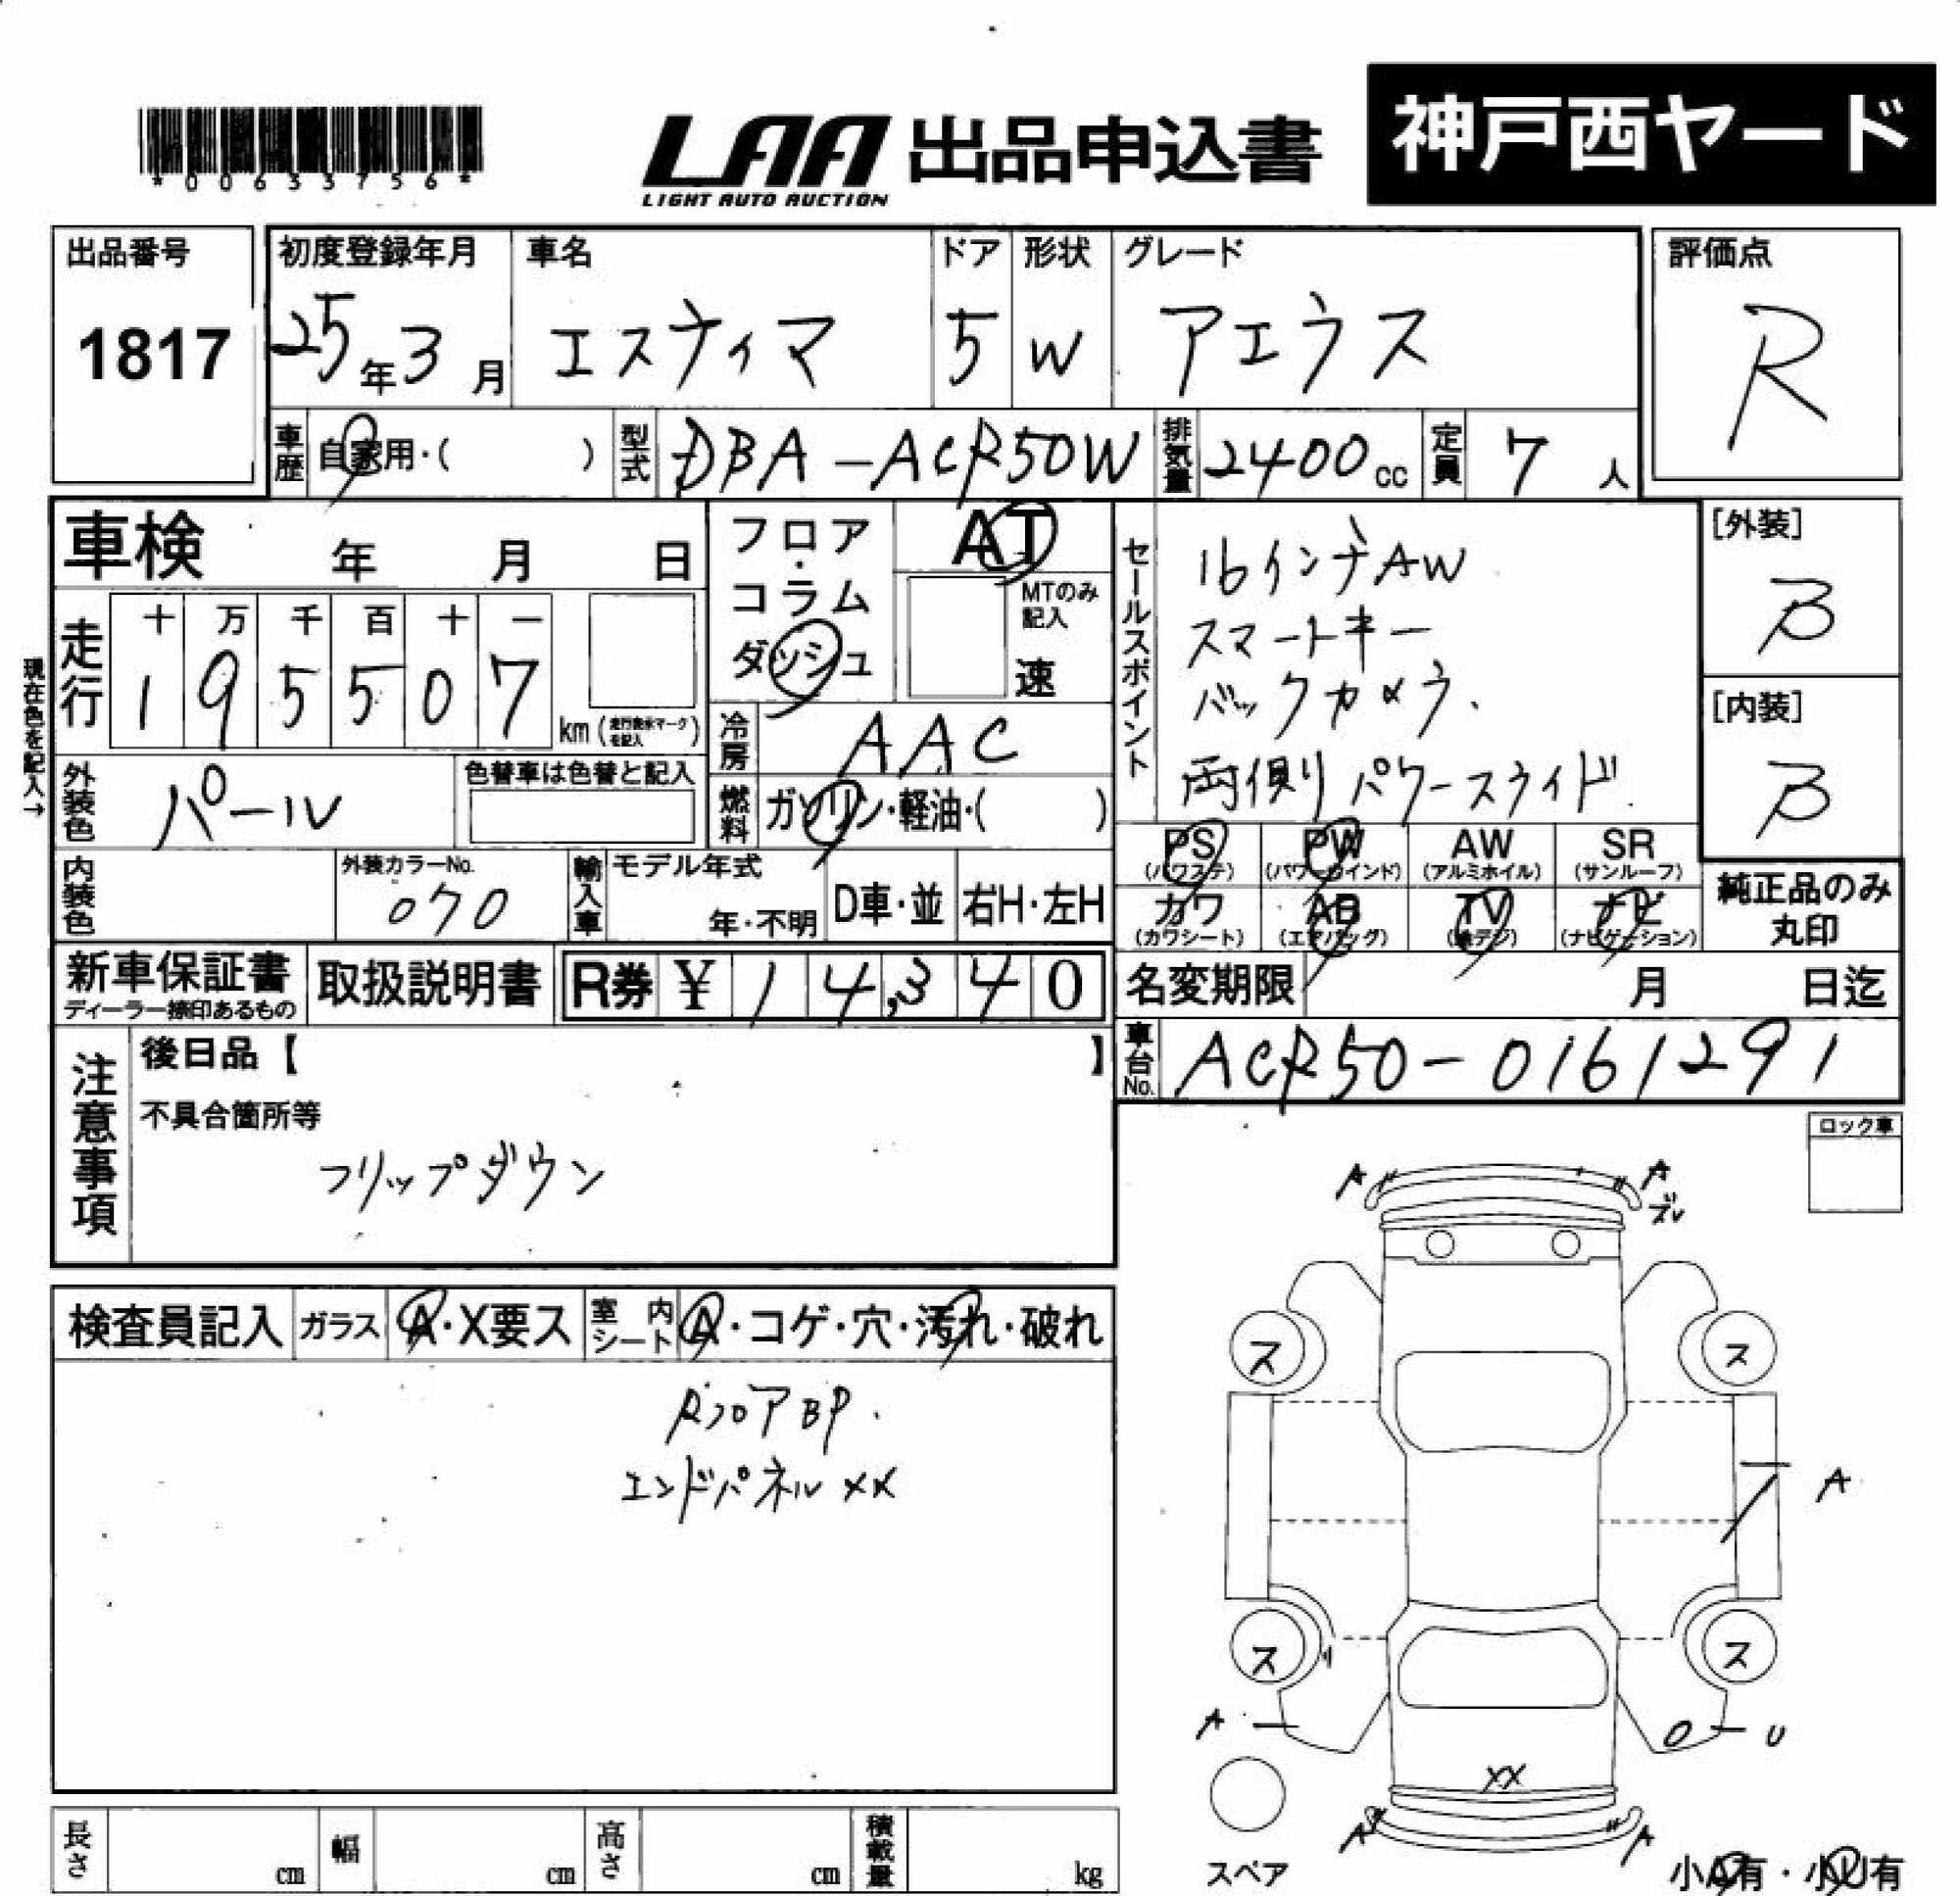 *00633756*
LAA 出品申込書 神戸西ヤード
LIGHT AUTO AUCTION
出品番号 初度登録年月 車名 ドア 形状 グレード 評価点
1817 25年3月 エスティマ 5 W アエラス R
車歴 自家用・( ) 型式 DBA-ACR50W 排気量 2400cc 定員 7人
車検 年 月 日
フロア・コラム ダッシュ
AT
MTのみ記入
速
セールスポイント
16インチAW
スマートキー
バックカメラ.
両側りパワースライド.
[外装]
B
[内装]
B
現在色を記入→
走行 十 万 千 百 十 一
1 9 5 5 0 7
km(走行表示マークを記入)
冷房 AAC
外装色 パール 色替車は色替と記入
燃料 ガソリン・軽油・( )
内装色 外装カラーNo. 070
輸入車 モデル年式 年・不明 D車・並 右H・左H
PS (パワステ) PW (パワーウインド) AW (アルミホイル) SR (サンルーフ)
カワ (カワシート) AB (エアバッグ) TV (地デジ) ナビ (ナビゲーション)
純正品のみ
丸印
新車保証書 取扱説明書 R券 ¥14,340
ディーラー捺印あるもの
名変期限 月 日迄
車台No. ACR50-0161291
注意事項
後日品【 】
不具合箇所等
フリップダウン
ロック車
検査員記入 ガラス A・X要ス 室内シート A・コゲ・穴・汚れ・破れ
Rフロア BP.
エンドパネル XX
A A
ズレ
ス ス
A
ス ス
A U
XX
A A
スペア
小A有・小U有
長さ cm 幅 cm 高さ cm 積載量 kg